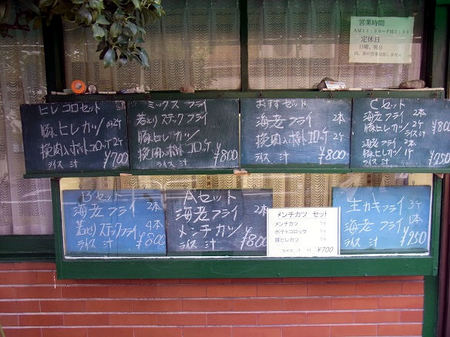 営業時間
定休日
日曜、祝日
ヒレコロセット
豚ヒレカツ 2ケ
挽肉入ポテトコロッケ 2ケ
ライス 汁 ¥700
ミックスフライ
若とりスティックフライ
豚ヒレカツ
挽肉入ポテトコロッケ
ライス 汁 ¥800
おすすめセット
海老フライ 2本
挽肉入ポテトコロッケ 2ケ
ライス 汁 ¥800
Cセット
海老フライ 2本
豚ヒレカツ
ライス 汁
Bセット
海老フライ 2本
若とりスティックフライ 4本
ライス 汁 ¥800
Aセット
海老フライ 2本
メンチカツ
ライス 汁 ¥800
メンチカツ セット
メンチカツ
ポテトコロッケ
豚ヒレカツ
ライス 汁 ¥700
生カキフライ 3ケ
海老フライ
ライス 汁 ¥950